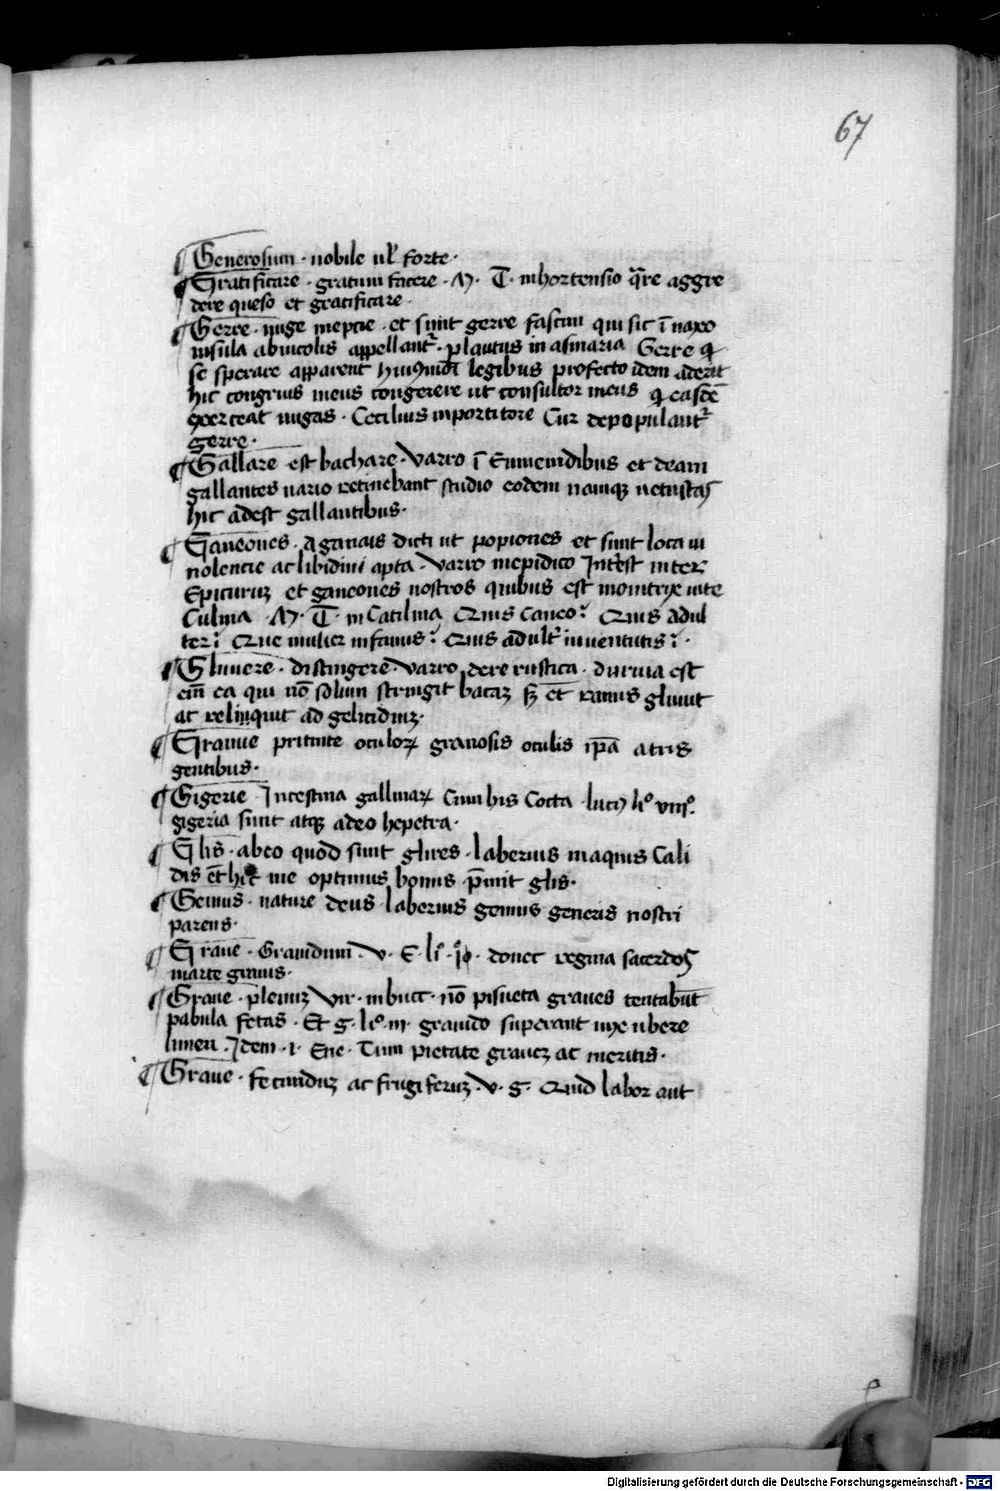 67
¶ Generosum · nobile ul̛ forte ·
¶ Gratificare · gratum facere · M · T · in hortensio q̄re aggre
dere queso et gratificare ·
¶ Gerre · nuge ineptie · et sunt gerre fascini qui sic ī naxo
insula ab incolis appellant᷑ · plautus in asinaria Gerre q
se sperare apparent huiꝰmōi legibus profecto idem aderit
hic congrius meus congerere ut consultor meus q eascē
exerceat nugas · Cecilius in portitore Cur depopulant᷑
gerre ·
¶ Gallare est bachare · Varro ī Eumenidibus et deam
gallantes uario retinebant studio eodem namqꝫ uetustas
hic adest gallantibus ·
¶ Ganeones · A ganeis dicti ut popiones et sunt loca ui
nolencie ac libidini apta · Varro inepidico Interest inter
Epicurum et ganeones nostros quibus est uite
Culina · M · T · in Catilina Quis Ganeo? Quis Adul
ter? Que mulier infamis? Quis adult᷑ iuuentutis? ·
¶ Gluuere · distingere · Varro de re rustica · duruia est
eīn ea qui nō solum stringit bacaꝫ sꝫ et ramus gluuit
ac relinquit ad gelicidiuꝫ ·
¶ Gramie pituite oculoꝝ gramosis oculis ip̄a atris
gentibus ·
¶ Gigerie Intestina gallinaꝝ Cum his Cocta · lucił lio viiio.
gigeria sunt atqꝫ adeo hepetra ·
¶ Glis · abeo quod sunt glires · laberius in aquis Cali
dis et hic me optimus bonus p̄mit glis ·
¶ Genius · nature deus · laberius genius generis nostri
parens ·
¶ Graue · Grauidum · V · E · li · donec regina sacerdos
marte grauis ·
¶ Graue · plenuꝫ Vir · in bucc · nō insueta graues tentabūt
pabula fetas · Et g · lio · iii · grauido superant uix ubere
limen · Idem · i · Ene · Tum pietate grauem ac meritis ·
¶ Graue · fecunduꝫ ac frugiferuꝫ · V · g · Quid labor aut
e
Digitalisierung gefördert durch die Deutsche Forschungsgemeinschaft - DFG